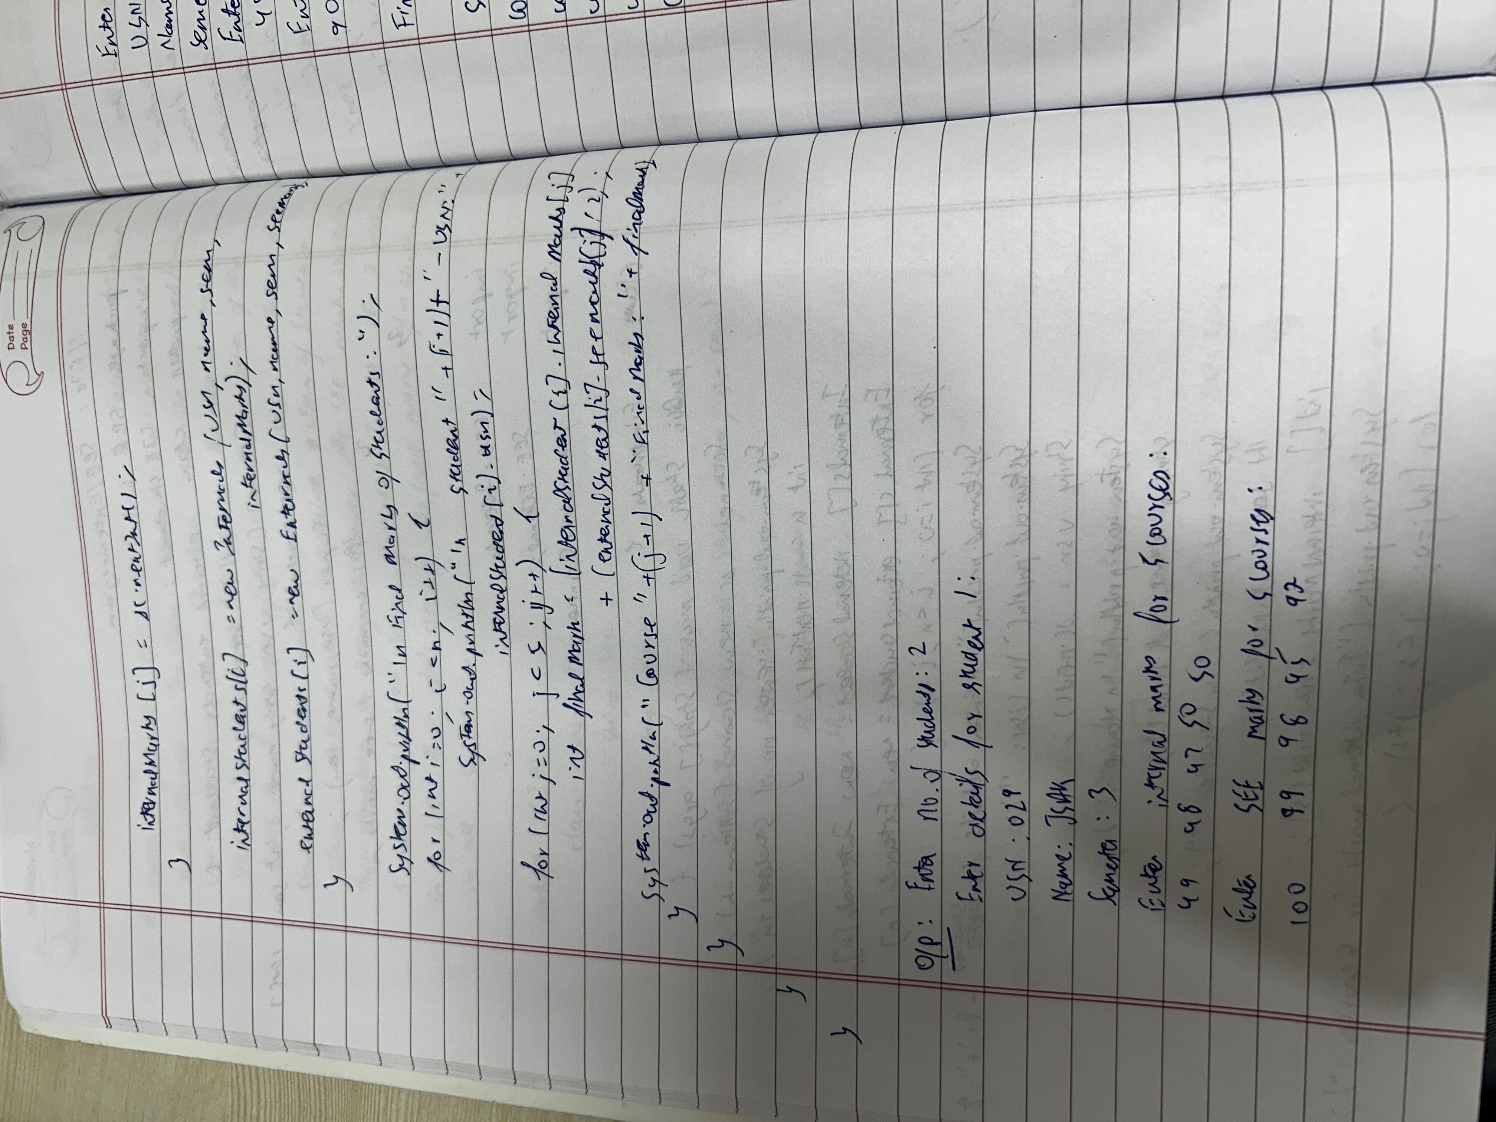 Date
Page
internalMarks [j] = sc.nextInt();
}
internalStudents[i] = new Internals (usn, name, sem,
internalMarks);
external students[i] = new Externals (usn, name, sem, seemarks
}
System.out.println("\n Final Marks of students: ");
for (int i=0; i<n; i++) {
System.out.println("\n student " + (i+1)+ " - USN: "
internalStudent[i].usn);
for (int j=0; j<5; j++) {
int final Marks = (internalStudent [i].internal Marks[j]
+ (externalStudents[i].seemarks[j] / 2);
System.out.println(" Course " +(j+1) + " Final Marks: " + finalmark)
}
}
}
}
O/p: Enter no. of students: 2
Enter details for student 1:
USN: 029
Name:
Semester: 3
Enter internal marks for 5 courses:
49 48 47 50 50
Enter SEE marks for 5 courses:
100 99 98 95 92
Enter
USN
Name
Seme
Ente
En
90
Fin